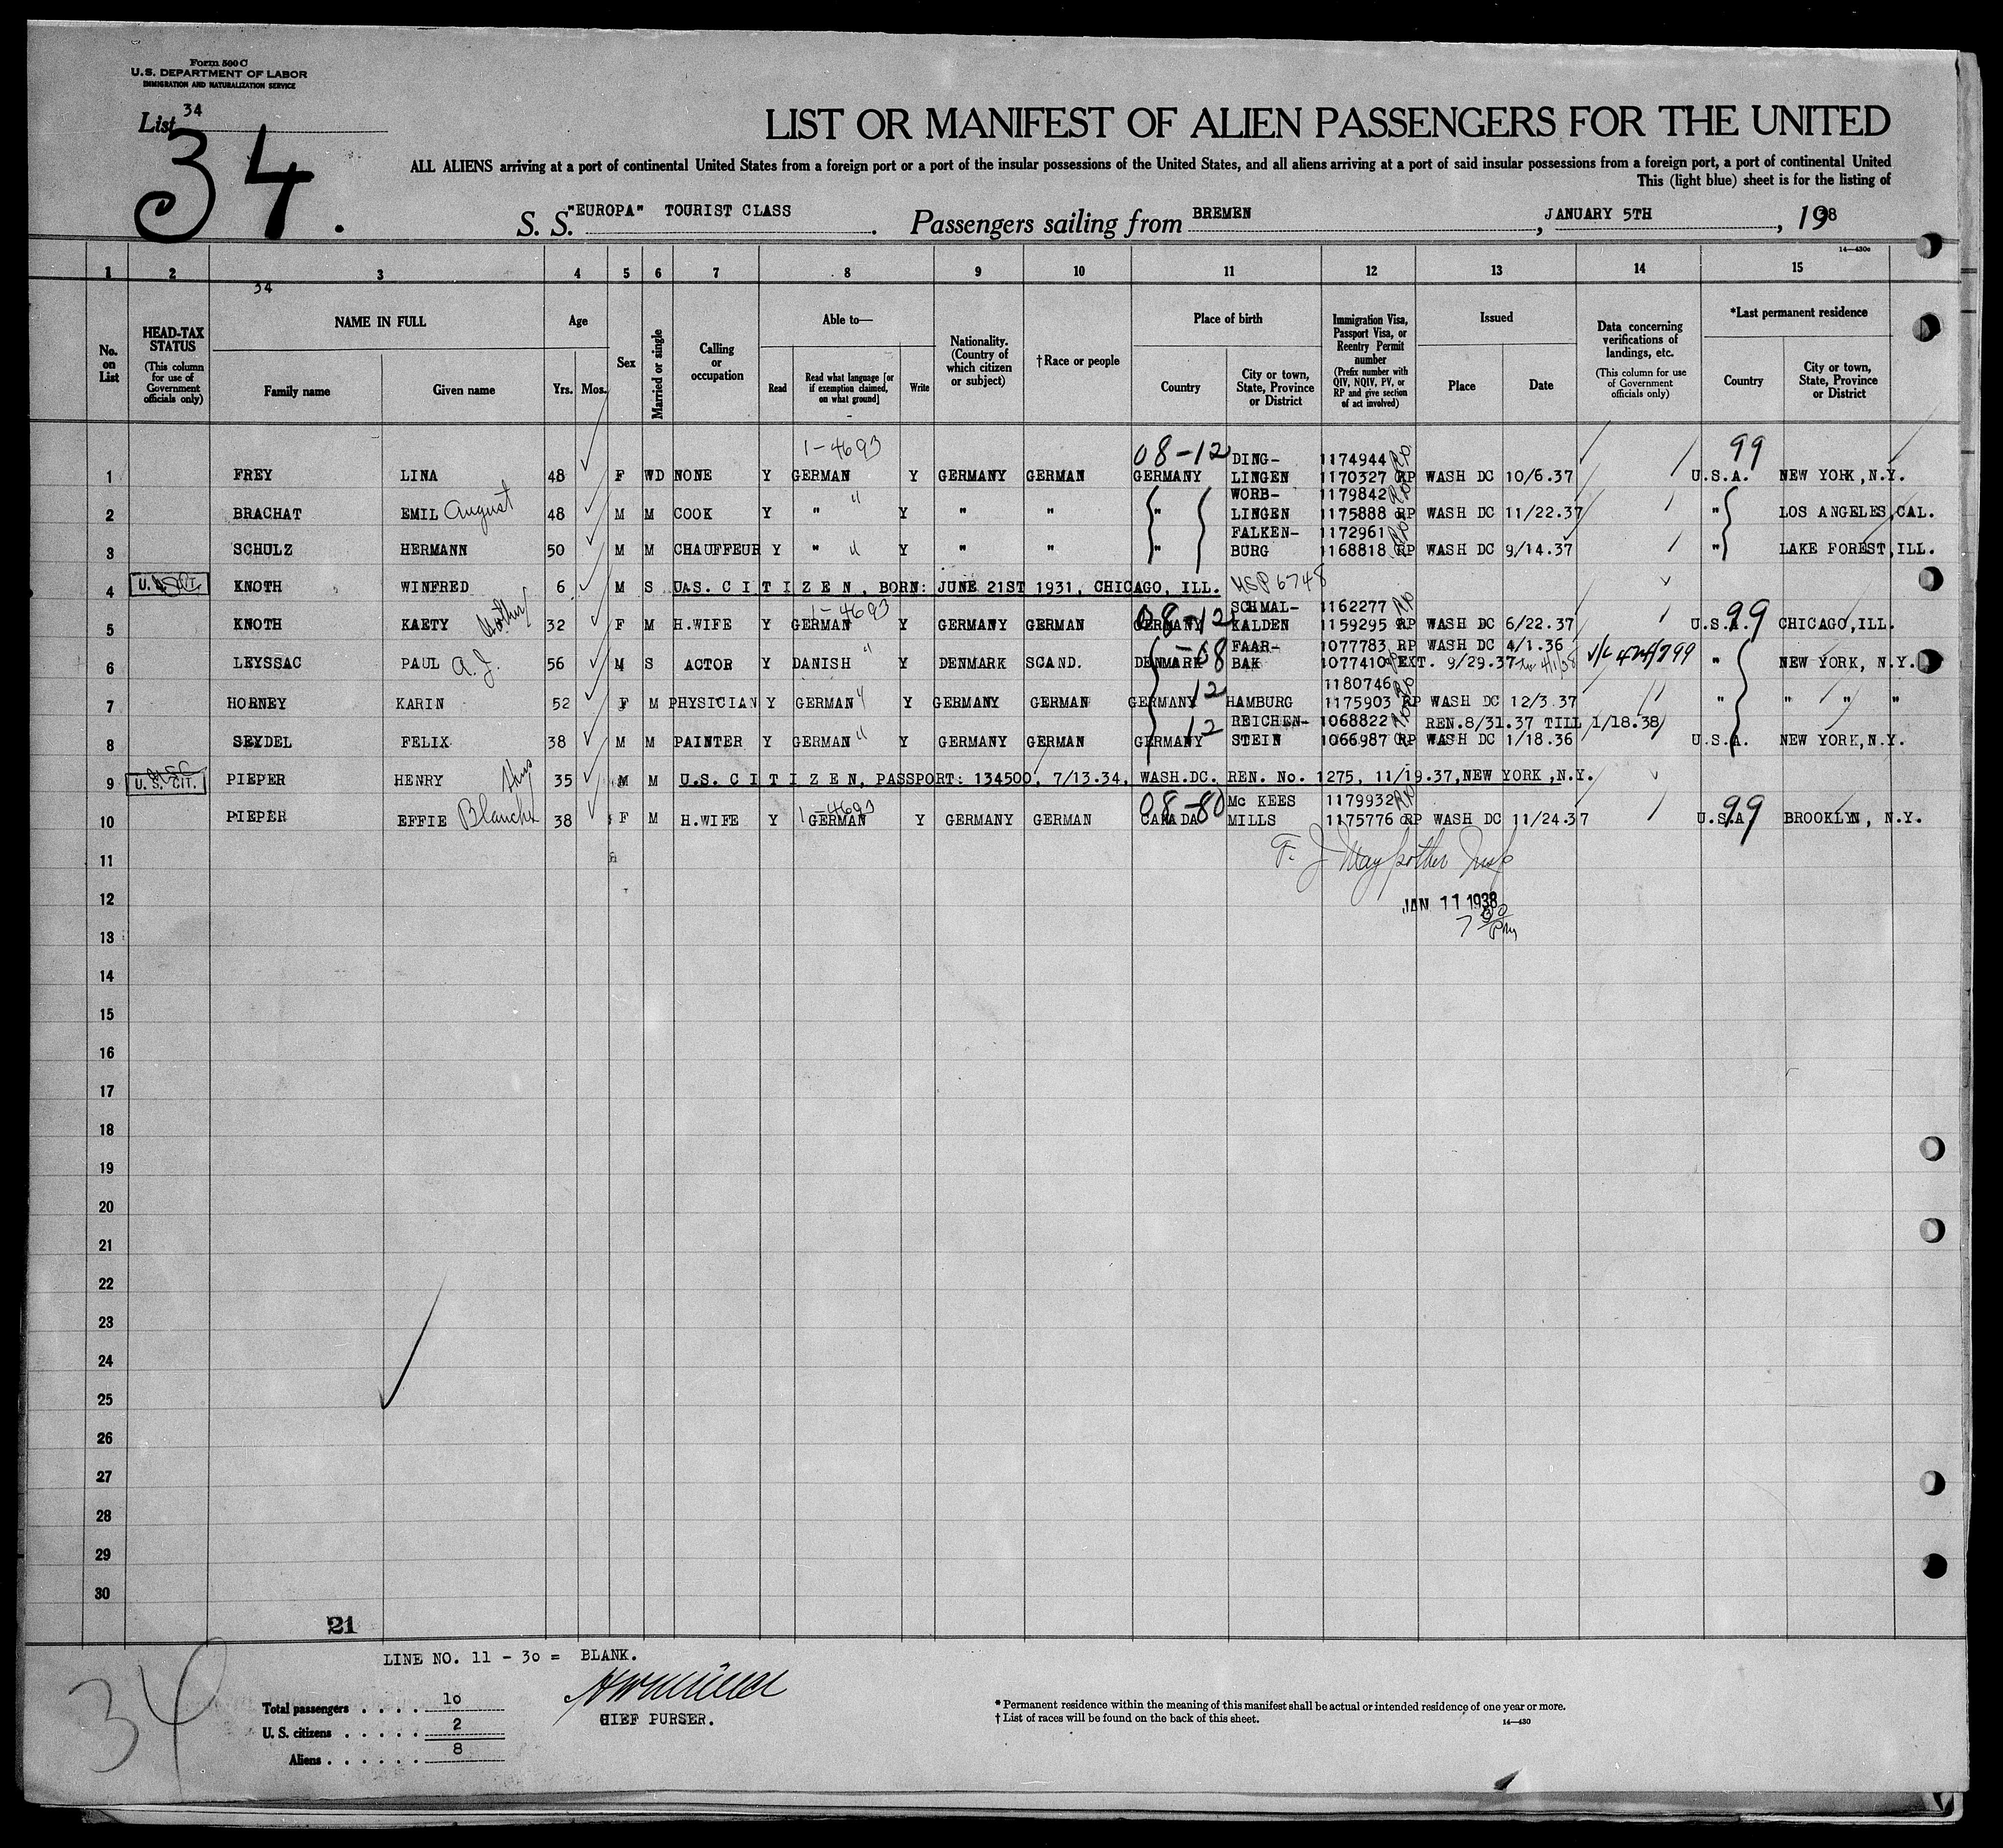 Form 500 C
U.S. DEPARTMENT OF LABOR
IMMIGRATION AND NATURALIZATION SERVICE
List 34
34.
LIST OR MANIFEST OF ALIEN PASSENGERS FOR THE UNITED
ALL ALIENS arriving at a port of continental United States from a foreign port or a port of the insular possessions of the United States, and all aliens arriving at a port of said insular possessions from a foreign port, a port of continental United
This (light blue) sheet is for the listing of
S. S. "EUROPA" TOURIST CLASS. Passengers sailing from BREMEN, JANUARY 5TH, 1938
14—430c
1 2 3 4 5 6 7 8 9 10 11 12 13 14 15
34
No. on List
HEAD-TAX STATUS (This column for use of Government officials only)
NAME IN FULL
Family name Given name
Age
Yrs. Mos.
Sex
Married or single
Calling or occupation
Able to—
Read Read what language [or if exemption claimed, on what ground] Write
Nationality. (Country of which citizen or subject)
†Race or people
Place of birth
Country City or town, State, Province or District
Immigration Visa, Passport Visa, or Reentry Permit number (Prefix number with QIV, NQIV, PV, or RP and give section of act involved)
Issued
Place Date
Data concerning verifications of landings, etc. (This column for use of Government officials only)
*Last permanent residence
Country City or town, State, Province or District
1-4693 08-12 DING- 1174944 99
1 FREY LINA 48 F WD NONE Y GERMAN Y GERMANY GERMAN GERMANY LINGEN 1170327 RP WASH DC 10/6.37 U.S.A. NEW YORK, N.Y.
WORB- 1179842
2 BRACHAT EMIL August 48 M M COOK Y " " Y " " " LINGEN 1175888 RP WASH DC 11/22.37 " LOS ANGELES, CAL.
FALKEN- 1172961
3 SCHULZ HERMANN 50 M M CHAUFFEUR Y " " Y " " " BURG 1168818 RP WASH DC 9/14.37 " LAKE FOREST, ILL.
4 KNOTH WINFRED 6 M S U.S. C I T I Z E N, BORN: JUNE 21ST 1931, CHICAGO, ILL. HSP 6748
1-4693 08-12 SCHMAL- 1162277 99
5 KNOTH KAETY Mother 32 F M H.WIFE Y GERMAN Y GERMANY GERMAN GERMANY KALDEN 1159295 RP WASH DC 6/22.37 U.S.A. CHICAGO, ILL.
FAAR- 1077783 RP WASH DC 4/1.36
6 LEYSSAC PAUL A.J. 56 M S ACTOR Y DANISH " Y DENMARK SCAND. DENMARK -08 BAK 1077410 EXT. 9/29.37 " NEW YORK, N.Y.
1180746
7 HORNEY KARIN 52 F M PHYSICIAN Y GERMAN " Y GERMANY GERMAN GERMANY 12 HAMBURG 1175903 RP WASH DC 12/3.37 " " " "
REICHEN- 1068822 REN.8/31.37 TILL 1/18.38
8 SEYDEL FELIX 38 M M PAINTER Y GERMAN " Y GERMANY GERMAN GERMANY 12 STEIN 1066987 RP WASH DC 1/18.36 U.S.A. NEW YORK, N.Y.
9 U.S. CIT. PIEPER HENRY 35 M M U.S. C I T I Z E N, PASSPORT: 134500, 7/13.34, WASH.DC. REN. No. 1275, 11/19.37, NEW YORK, N.Y.
1-4693 08-80 Mc KEES 1179932 99
10 PIEPER EFFIE Blanche 38 F M H.WIFE Y GERMAN Y GERMANY GERMAN CANADA MILLS 1175776 RP WASH DC 11/24.37 U.S.A. BROOKLYN, N.Y.
11
12 JAN 11 1938
13
14
15
16
17
18
19
20
21
22
23
24
25
26
27
28
29
30
21
LINE NO. 11 - 30 = BLANK.
34
Total passengers . . . . 10
U. S. citizens . . . . . 2
Aliens . . . . . . 8
CHIEF PURSER.
* Permanent residence within the meaning of this manifest shall be actual or intended residence of one year or more.
† List of races will be found on the back of this sheet.
14—430